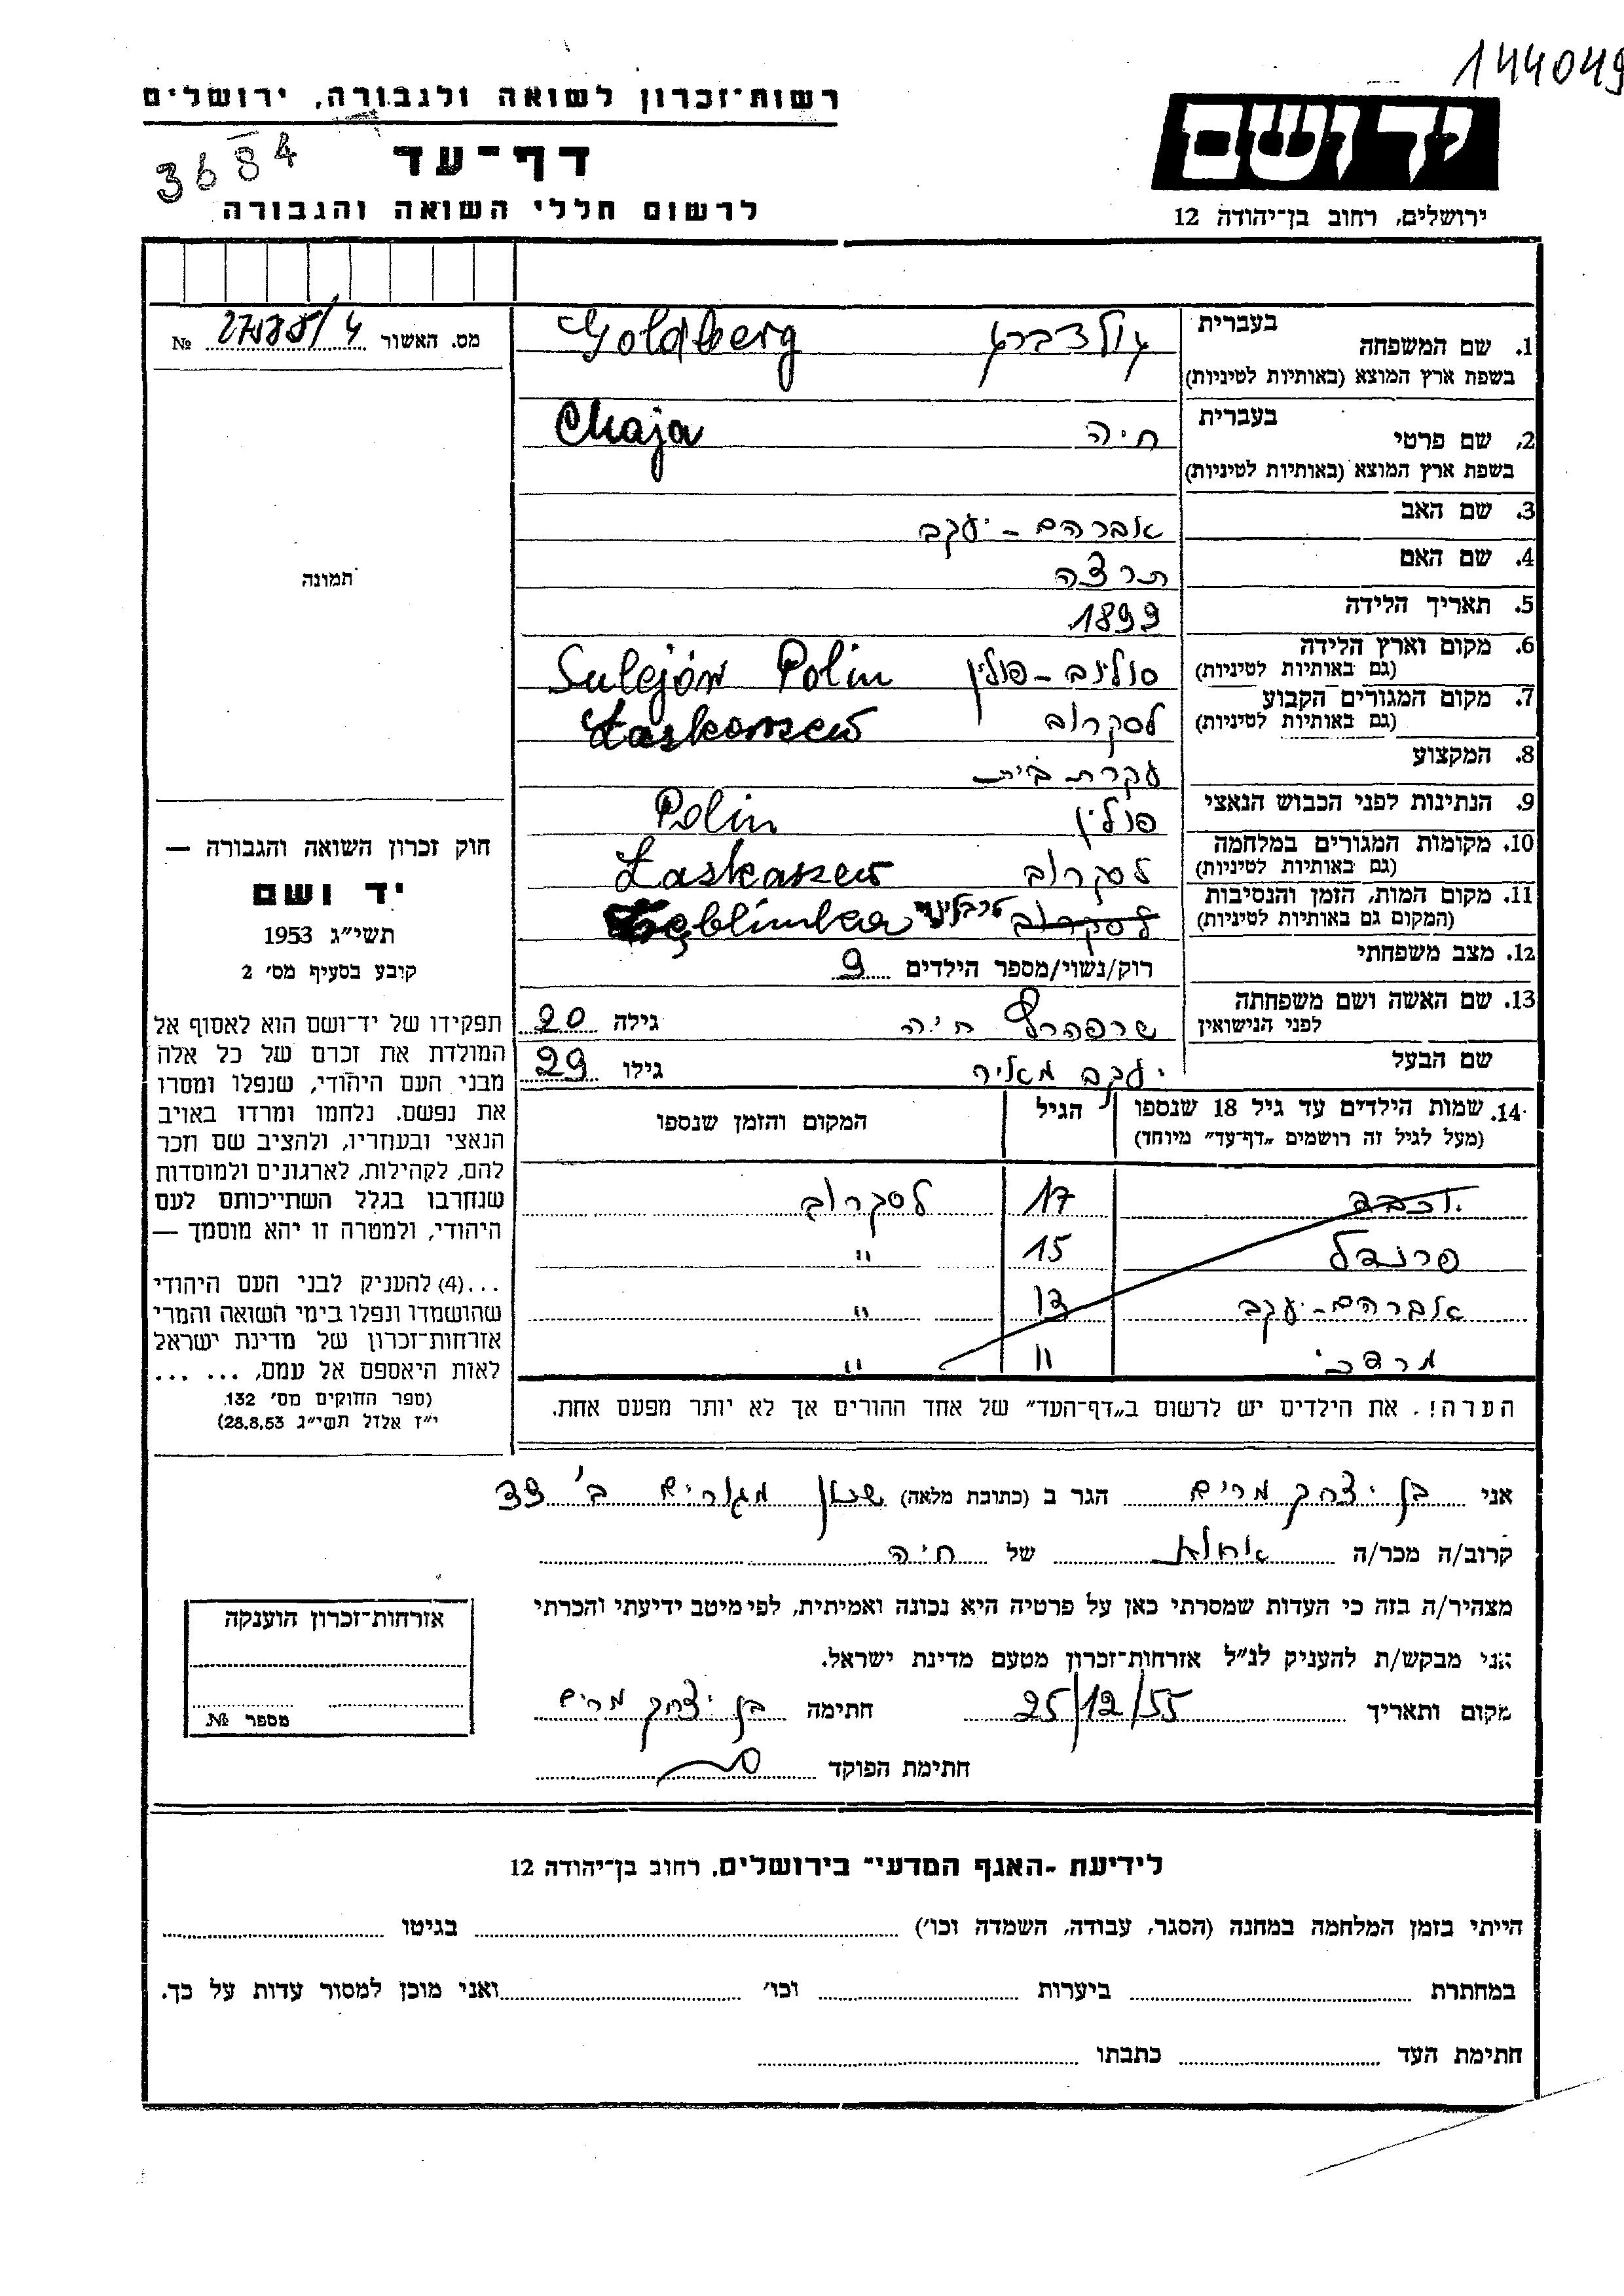 144049
רשות־זכרון לשואה ולגבורה, ירושלים
דף־עד
3684
לרשום חללי השואה והגבורה
יד ושם
ירושלים, רחוב בן־יהודה 12
מס. האשור № 27588/4
בעברית
1. שם המשפחה גולדברג Goldberg
בשפת ארץ המוצא (באותיות לטיניות)
בעברית
2. שם פרטי חיה Chaja
בשפת ארץ המוצא (באותיות לטיניות)
3. שם האב אברהם - יעקב
4. שם האם תרצה
5. תאריך הלידה 1899
6. מקום וארץ הלידה סוליוב - פולין Sulejów Polin
(גם באותיות לטיניות)
7. מקום המגורים הקבוע לסקרוב
(גם באותיות לטיניות)
8. המקצוע עקרת בית
9. הנתינות לפני הכבוש הנאצי פולין Polin
10. מקומות המגורים במלחמה לסקרוב
(גם באותיות לטיניות)
11. מקום המות, הזמן והנסיבות לסקרוב
(המקום גם באותיות לטיניות)
12. מצב משפחתי רוק/נשוי/מספר הילדים 9
13. שם האשה ושם משפחתה חיה גילה 20
לפני הנישואין
שם הבעל יעקב מאיר גילו 29
14. שמות הילדים עד גיל 18 שנספו הגיל המקום והזמן שנספו
(מעל לגיל זה רושמים „דף־עד" מיוחד)
יוכבד 17 לסקרוב
פרנדל 15 "
אברהם - יעקב 13 "
מרדכי 11 "
הערה!. את הילדים יש לרשום ב„דף־העד" של אחד ההורים אך לא יותר מפעם אחת.
תמונה
חוק זכרון השואה והגבורה —
יד ושם
תשי"ג 1953
קובע בסעיף מס' 2
תפקידו של יד־ושם הוא לאסוף אל
המולדת את זכרם של כל אלה
מבני העם היהודי, שנפלו ומסרו
את נפשם. נלחמו ומרדו באויב
הנאצי ובעוזריו, ולהציב שם וזכר
להם, לקהילות, לארגונים ולמוסדות
שנחרבו בגלל השתייכותם לעם
היהודי, ולמטרה זו יהא מוסמך —
...(4) להעניק לבני העם היהודי
שהושמדו ונפלו בימי השואה והמרי
אזרחות־זכרון של מדינת ישראל
לאות היאספם אל עמם, ... ...
(ספר החוקים מס' 132,
י"ז אלול תשי"ג 28.8.53)
אני בן יצחק מרים הגר ב (כתובת מלאה) שכון מגורים ב' 33
קרוב/ה מכר/ה אחות של חיה
מצהיר/ה בזה כי העדות שמסרתי כאן על פרטיה היא נכונה ואמיתית, לפי מיטב ידיעתי והכרתי
אני מבקש/ת להעניק לנ"ל אזרחות־זכרון מטעם מדינת ישראל.
מקום ותאריך 25/12/55 חתימה בן יצחק מרים
חתימת הפוקד
אזרחות־זכרון הוענקה
מספר №
לידיעת -האגף המדעי" בירושלים, רחוב בן־יהודה 12
הייתי בזמן המלחמה במחנה (הסגר, עבודה, השמדה וכו') בגיטו
במחתרת ביערות וכו' ואני מוכן למסור עדות על כך.
חתימת העד כתבתו